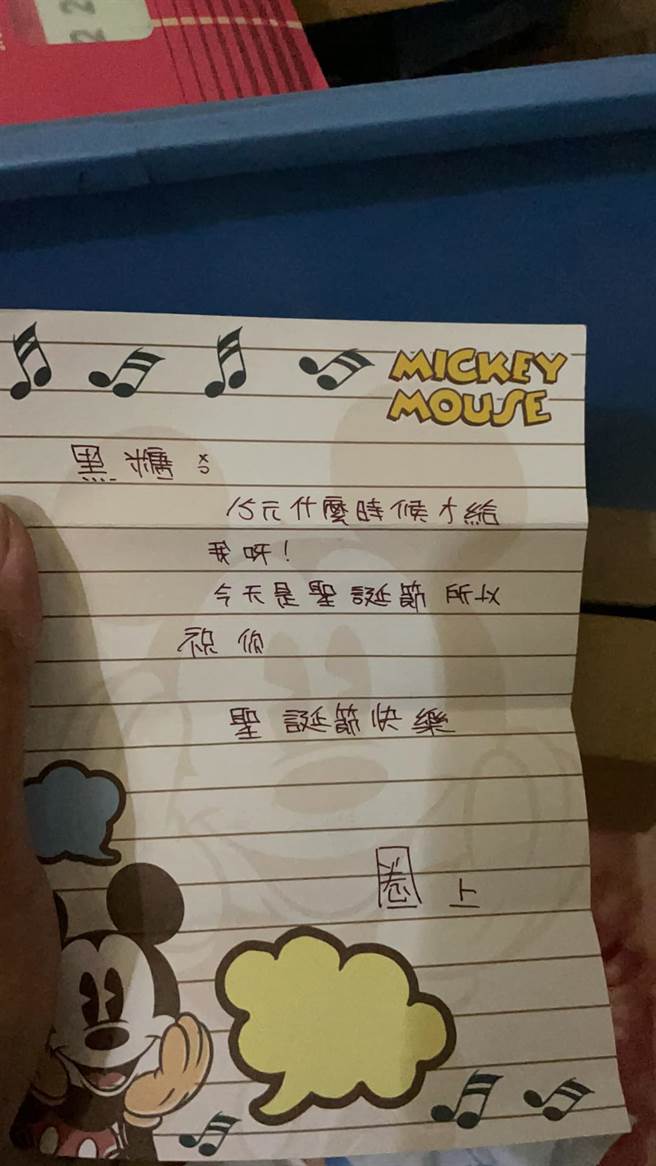 2 2
MICKEY
MOUSE
黑糖:
15元什麼時候才給
我呀!
今天是聖誕節所以
祝你
聖誕節快樂
圈 上